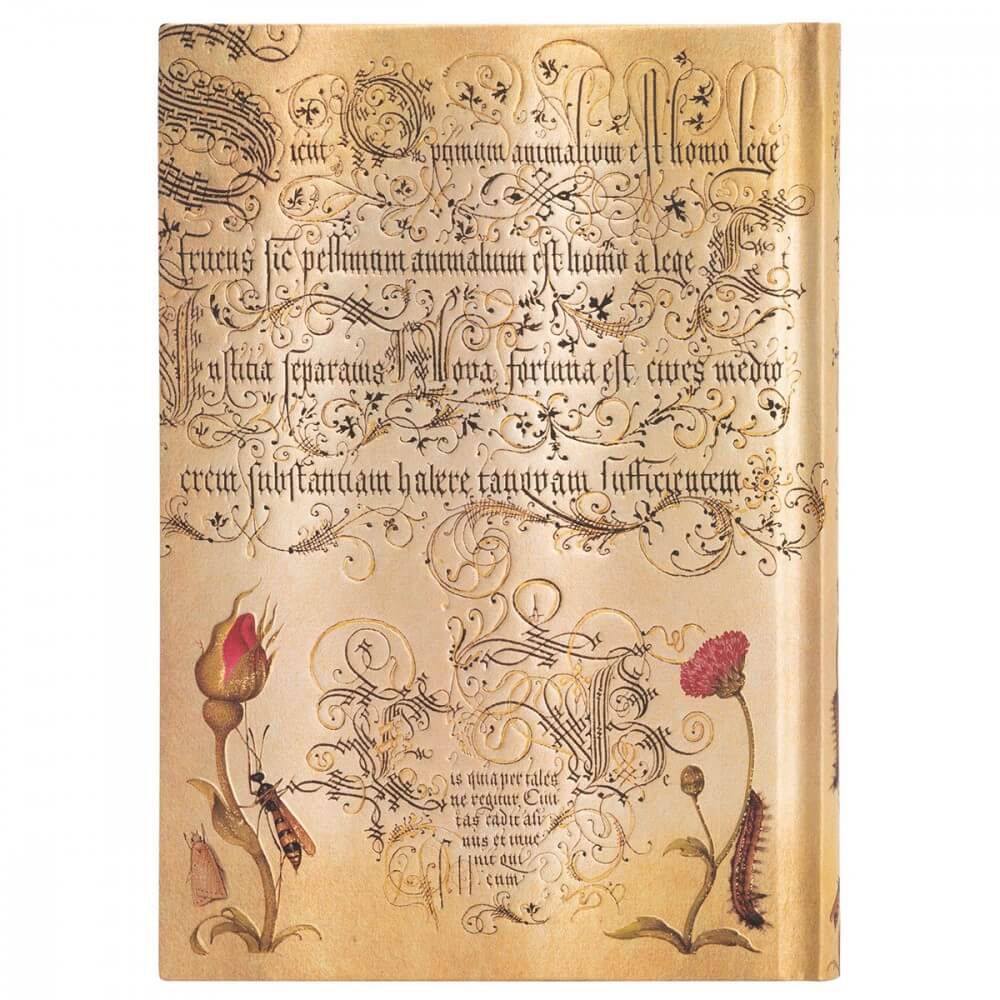 Sicut Optimum animalium est homo lege
fruens sic pessimum animalium est homo a lege Et
Iustitia separatus Nova fortuna est cives medio
crem substantiam habere tanquam sufficientem
is quia per tales
ne regitur. Civi
tas cadit ali
uus et inue
nit qui
cum